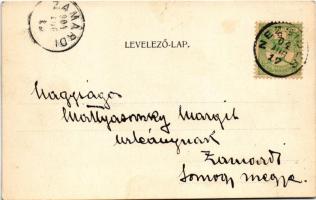 ZAMÁRDI
LEVELEZŐ-LAP.
Nagyságos
Mattyasovszky Margit
urleánynak
Zamárdi
Somogy megye.